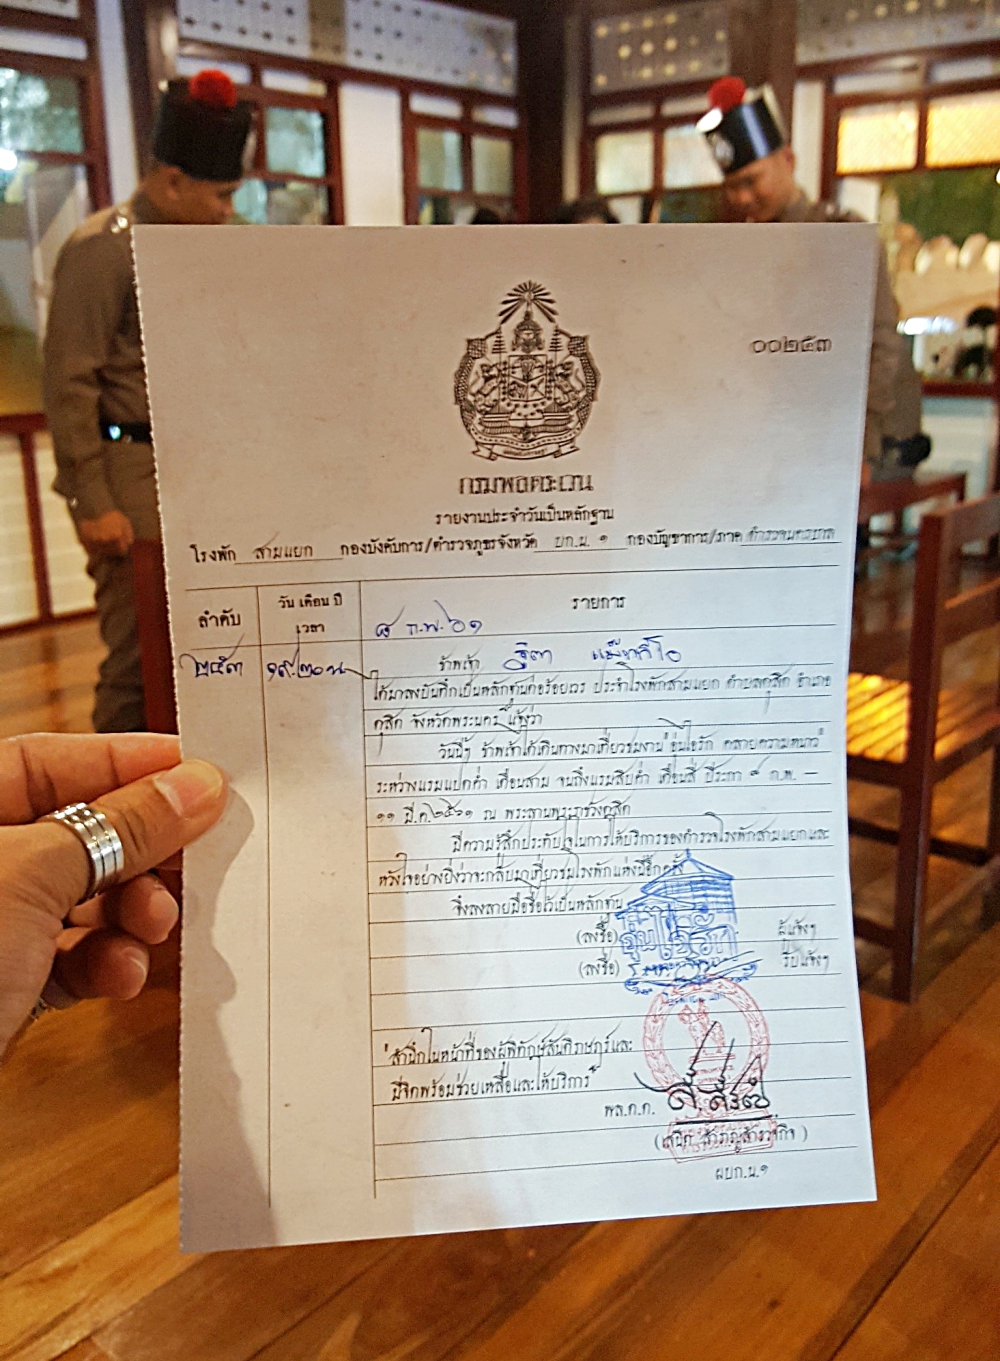 ๐๐๒๕๓
กรมพลตระเวน
รายงานประจำวันเป็นหลักฐาน
โรงพัก สามแยก กองบังคับการ/ตำรวจภูธรจังหวัด บก.น. ๑ กองบัญชาการ/ภาค ตำรวจนครบาล
ลำดับ
วัน เดือน ปี
เวลา
รายการ
๘ ก.พ. ๖๑
๒๕๓
๑๙.๒๐ น.
ข้าพเจ้า
ได้มาลงบันทึกเป็นหลักฐานต่อร้อยเวร ประจำโรงพักสามแยก ตำบลดุสิต อำเภอ
ดุสิต จังหวัดพระนคร แจ้งว่า
วันนี้ๆ ข้าพเจ้าได้เดินทางมาเที่ยวชมงาน "อุ่นไอรัก คลายความหนาว"
ระหว่างแรมแปดค่ำ เดือนสาม จนถึงแรมสิบค่ำ เดือนสี่ ปีระกา ๘ ก.พ. –
๑๑ มี.ค.๒๕๖๑ ณ พระลานพระราชวังดุสิต
มีความรู้สึกประทับใจในการให้บริการของตำรวจโรงพักสามแยกและ
หวังใจอย่างยิ่งว่าจะกลับมาเที่ยวชมโรงพักแห่งนี้อีกครั้ง
จึงลงลายมือชื่อไว้เป็นหลักฐาน
(ลงชื่อ) ผู้แจ้งฯ
(ลงชื่อ) รับแจ้งฯ
อุ่นไอรัก
"สำนึกในหน้าที่ของผู้พิทักษ์สันติราษฎร์และ
มีจิตพร้อมช่วยเหลือและให้บริการ"
พล.ต.ต.
(เสนิต สำราญสำรวจกิจ)
ผบก.น.๑